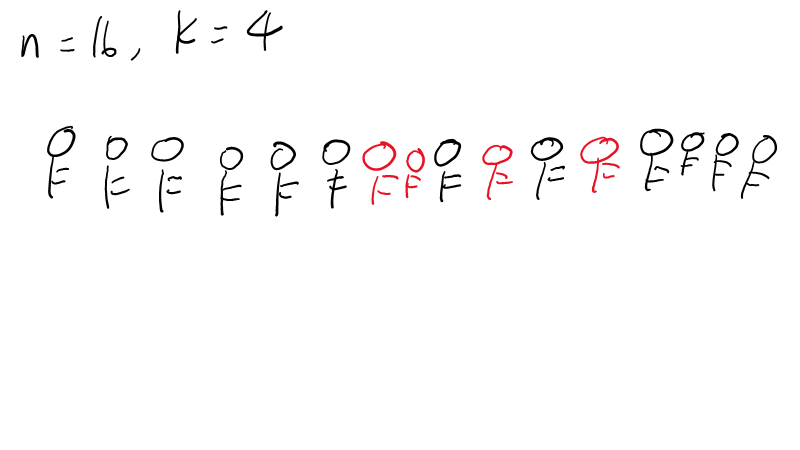 n = 16, k = 4